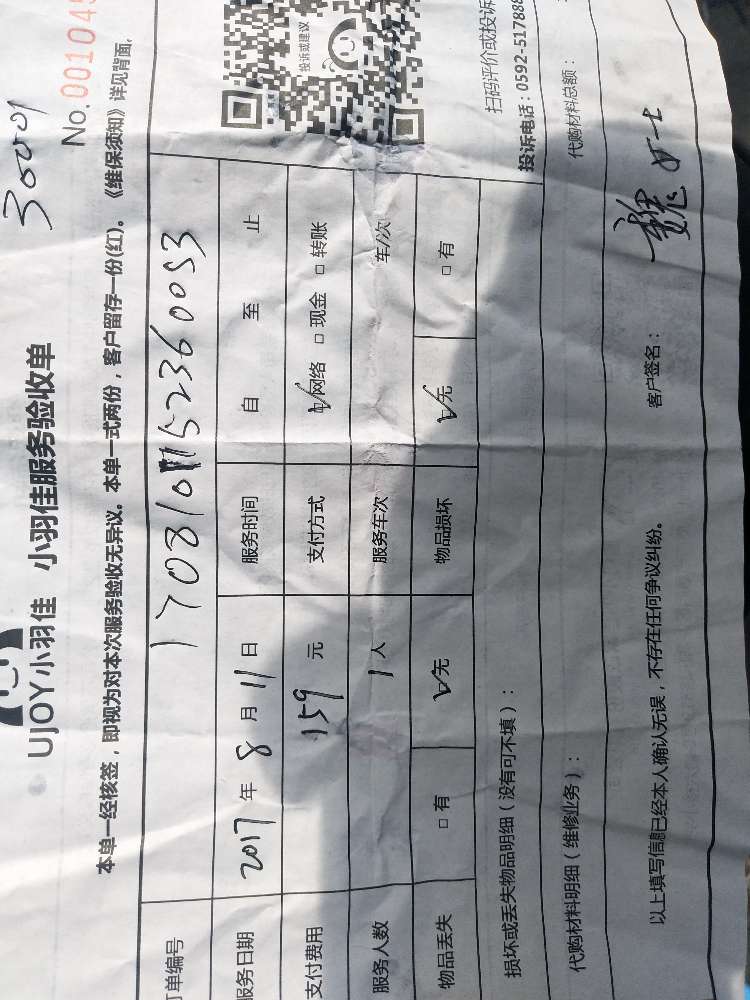 30001
UJOY小羽佳 小羽佳服务验收单
No.001045
本单一经核签，即视为对本次服务验收无异议。本单一式两份，客户留存一份(红)。《维保须知》详见背面,
订单编号 1708101152360053
服务日期 2017 年 8 月 11 日 服务时间 自 至 止
支付费用 159 元 支付方式 ☑网络 □现金 □转账
服务人数 1 人 服务车次 车/次
物品丢失 □有 ☑无 物品损坏 ☑无 □有
投诉或建议
扫码评价或投诉
投诉电话：0592-517888
损坏或丢失物品明细（没有可不填）：
代购材料明细（维修业务）： 代购材料总额：
以上填写信息已经本人确认无误，不存在任何争议纠纷。 客户签名： 魏女士